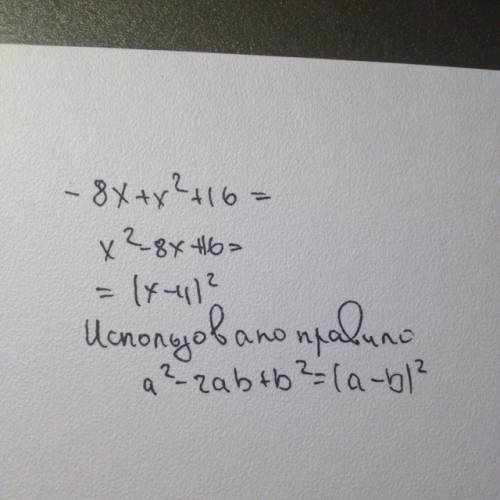 - 8x+x²+16=
x²-8x+16=
= (x-4)²
Использовано правило
a²-2ab+b²=(a-b)²